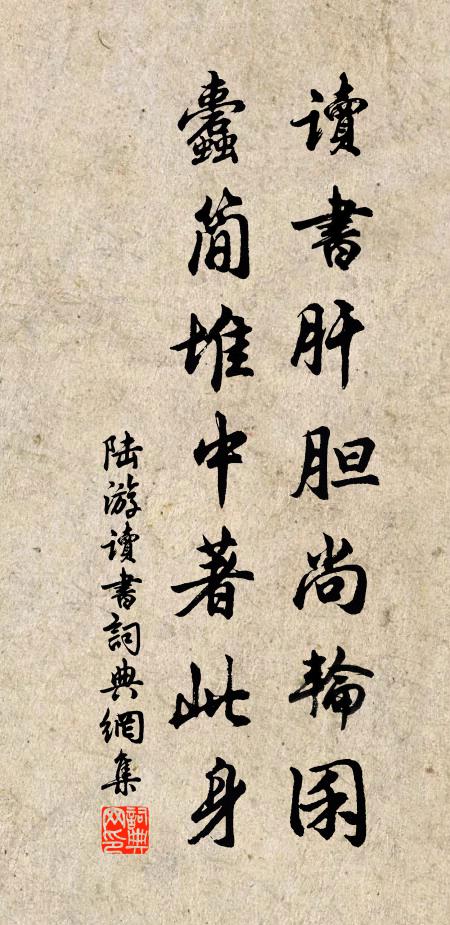 讀書肝胆尚輪囷
蠹简堆中著此身
陆游讀書詞典網集
詞典网印